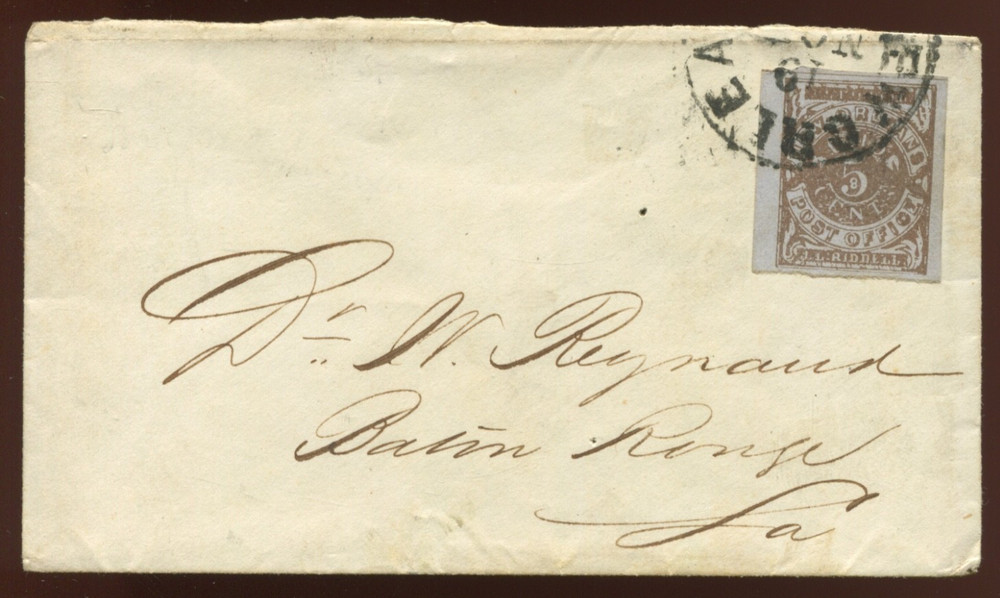 ORLEANS
5
CENTS
POST OFFICE
J.L. RIDDELL
Dr W. Reynaud
Baton Rouge
La